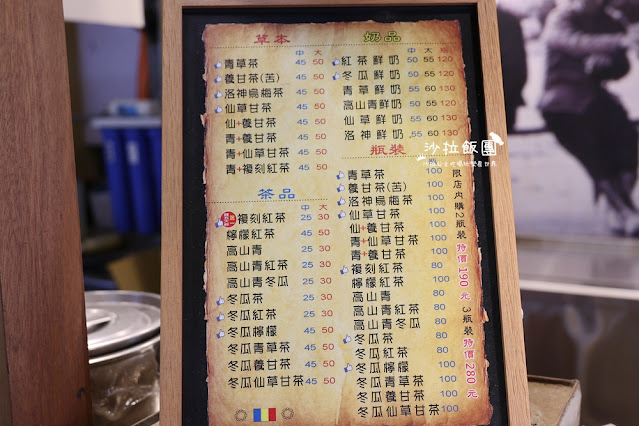 草本
中 大
青草茶 45 50
養甘茶(苦) 45 50
洛神烏梅茶 45 50
仙草甘茶 45 50
仙+養甘茶 45 50
青+養甘茶 45 50
青+仙草甘茶 45 50
青+複刻紅茶 45 50
茶品
中 大
複刻紅茶 25 30
檸檬紅茶 45 50
高山青 25 30
高山青紅茶 25 30
高山青冬瓜 25 30
冬瓜茶 25 30
冬瓜紅茶 25 30
冬瓜檸檬 45 50
冬瓜青草茶 45 50
冬瓜養甘茶 45 50
冬瓜仙草甘茶 45 50
奶品
中 大 瓶
紅茶鮮奶 50 55 120
冬瓜鮮奶 50 55 120
青草鮮奶 55 60 130
高山青鮮奶 50 55 120
仙草鮮奶 55 60 130
洛神鮮奶 55 60 130
瓶裝
青草茶 100
養甘茶(苦) 100
洛神烏梅茶 100
仙草甘茶 100
仙+養甘茶 100
青+養甘茶 100
青+仙草甘茶 100
複刻紅茶 80
檸檬紅茶 100
高山青 80
高山青紅茶 80
高山青冬瓜 80
冬瓜茶 80
冬瓜紅茶 80
冬瓜檸檬 100
冬瓜青草茶 100
冬瓜養甘茶 100
冬瓜仙草甘茶 100
限店內購2瓶裝特價190元 3瓶裝特價280元
沙拉飯團